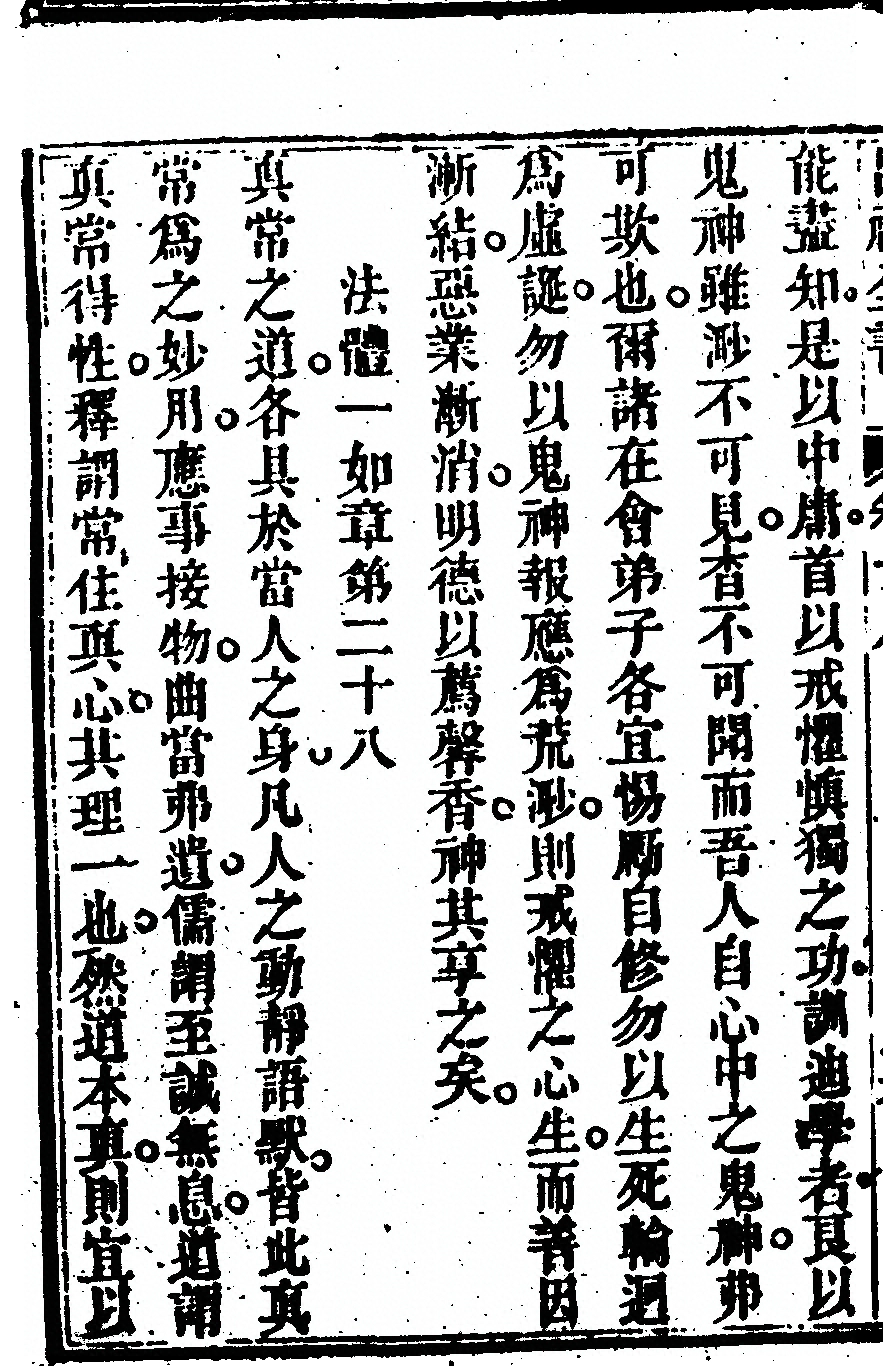 能盡知。是以中庸。首以戒懼慎獨之功。訓迪學者。良以
鬼神雖渺不可見。杳不可聞。而吾人自心中之鬼神。弗
可欺也。爾諸在會弟子。各宜惕勵自修。勿以生死輪迴
爲虛誕。勿以鬼神報應爲荒渺。則戒懼之心生。而善因
漸結。惡業漸消。明德以薦馨香。神其享之矣。
法體一如章第二十八
真常之道。各具於當人之身。凡人之動靜語默。皆此真
常爲之妙用。應事接物。曲當弗遺。儒謂至誠無息。道謂
真常得性。釋謂常住真心。其理一也。然道本真。則宜以